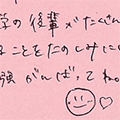 学の後輩がたくさん
ることをたのしみに
強がんばってね。